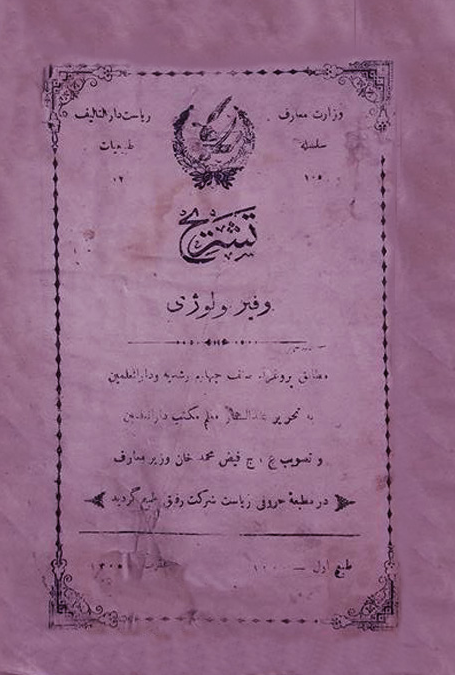 وزارت معارف
ریاست دار التالیف
سلسله
طبیعیات
۱۰۵
۱۶
تشریح
و فیز یولوژی
مطابق پروغرام صنف چهارم رشدیه و دارالمعلمین
به تحریر عبدالستار معلم مکتب دارالمعلمین
و تصویب ع ، ج فیض محمد خان وزیر معارف
در مطبعهٔ حروفی ریاست شرکت رفیق طبع گردید
طبع اول — ۱۰۰۰
۱۳۰۵